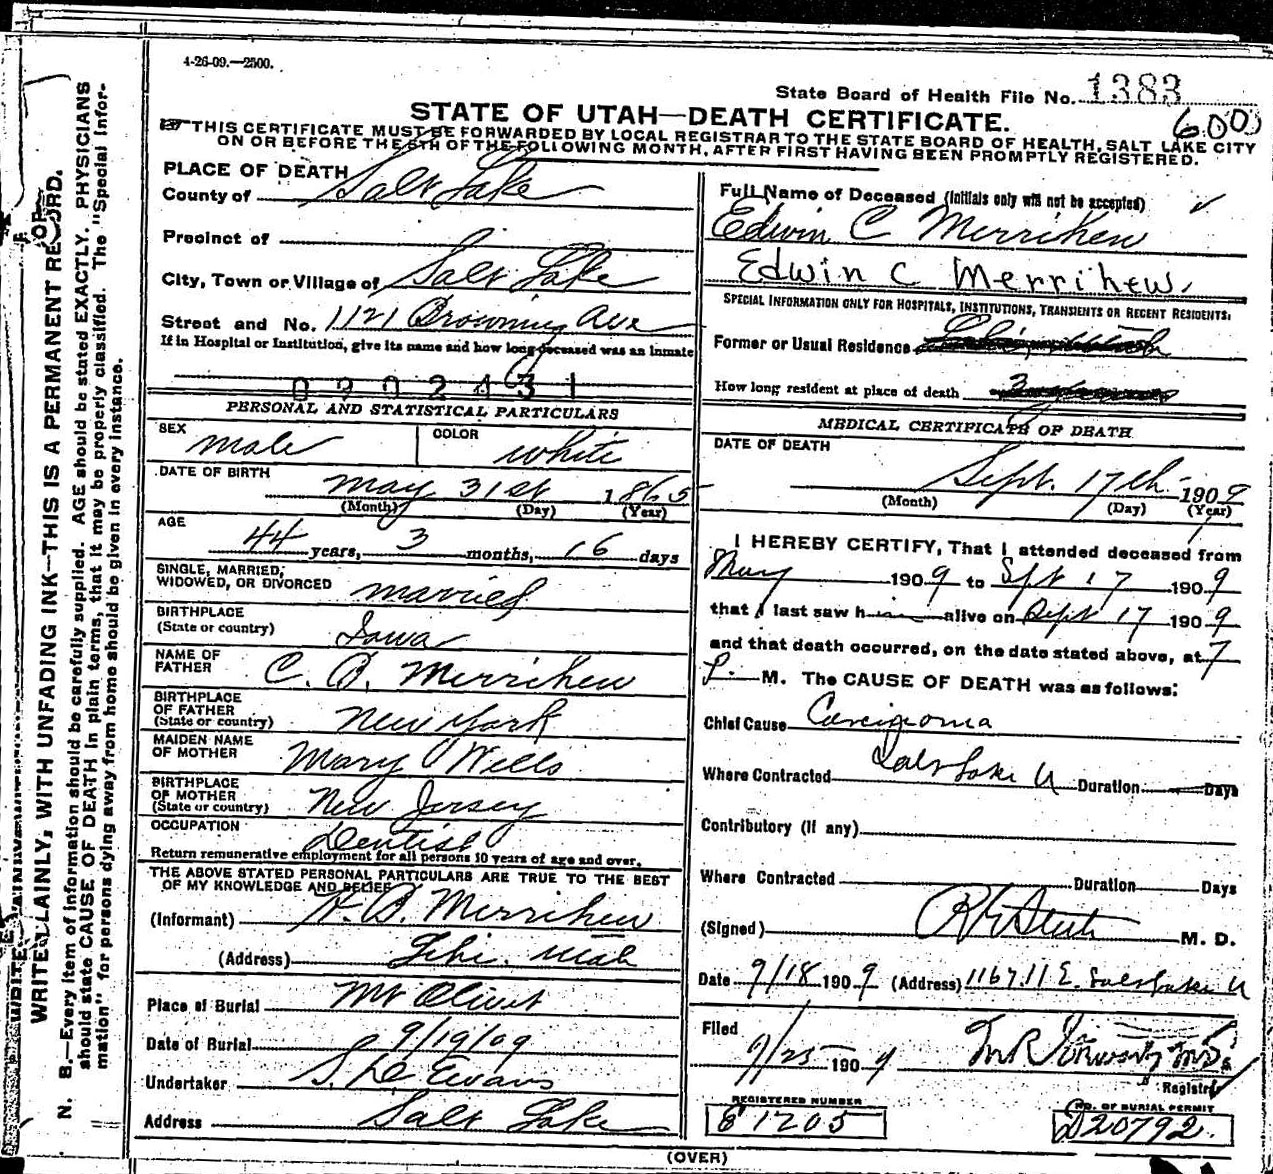 4-26-09.—2500.
State Board of Health File No. 1383
600
STATE OF UTAH—DEATH CERTIFICATE.
THIS CERTIFICATE MUST BE FORWARDED BY LOCAL REGISTRAR TO THE STATE BOARD OF HEALTH, SALT LAKE CITY
ON OR BEFORE THE 5TH OF THE FOLLOWING MONTH, AFTER FIRST HAVING BEEN PROMPTLY REGISTERED.
PLACE OF DEATH
County of Salt Lake
Precinct of
City, Town or Village of Salt Lake
Street and No. 1121 Browning Ave
If in Hospital or Institution, give its name and how long deceased was an inmate
0902431
PERSONAL AND STATISTICAL PARTICULARS
SEX male COLOR white
DATE OF BIRTH May 31st 1865
(Month) (Day) (Year)
AGE 44 years, 3 months, 16 days
SINGLE, MARRIED,
WIDOWED, OR DIVORCED married
BIRTHPLACE
(State or country) Iowa
NAME OF
FATHER C. B. Merrihew
BIRTHPLACE
OF FATHER
(State or country) New York
MAIDEN NAME
OF MOTHER Mary Wells
BIRTHPLACE
OF MOTHER
(State or country) New Jersey
OCCUPATION Dentist
Return remunerative employment for all persons 10 years of age and over.
THE ABOVE STATED PERSONAL PARTICULARS ARE TRUE TO THE BEST
OF MY KNOWLEDGE AND BELIEF
(Informant) B. Merrihew
(Address) Lehi. Utah
Place of Burial Mt Olivet
Date of Burial 9/19/09
Undertaker S. D. Evans
Address Salt Lake
Full Name of Deceased (Initials only will not be accepted)
Edwin C Merrihew
Edwin C Merrihew.
SPECIAL INFORMATION ONLY FOR HOSPITALS, INSTITUTIONS, TRANSIENTS OR RECENT RESIDENTS:
Former or Usual Residence
How long resident at place of death
MEDICAL CERTIFICATE OF DEATH
DATE OF DEATH
Sept. 17th 1909
(Month) (Day) (Year)
I HEREBY CERTIFY, That I attended deceased from
May 1909 to Sept 17 1909
that I last saw him alive on Sept 17 1909
and that death occurred, on the date stated above, at 7
P. M. The CAUSE OF DEATH was as follows:
Chief Cause Carcinoma
Where Contracted Salt Lake U Duration Days
Contributory (If any)
Where Contracted Duration Days
(Signed) M. D.
Date 9/18 1909 (Address) 1167 11 E. Salt Lake U
Filed
9/25 1909
Registrar
REGISTERED NUMBER
1705
NO. OF BURIAL PERMIT
D20792.
(OVER)
WRITE PLAINLY, WITH UNFADING INK—THIS IS A PERMANENT RECORD.
N. B.—Every item of information should be carefully supplied. AGE should be stated EXACTLY. PHYSICIANS
should state CAUSE OF DEATH in plain terms, that it may be properly classified. The "Special Infor-
mation" for persons dying away from home should be given in every instance.